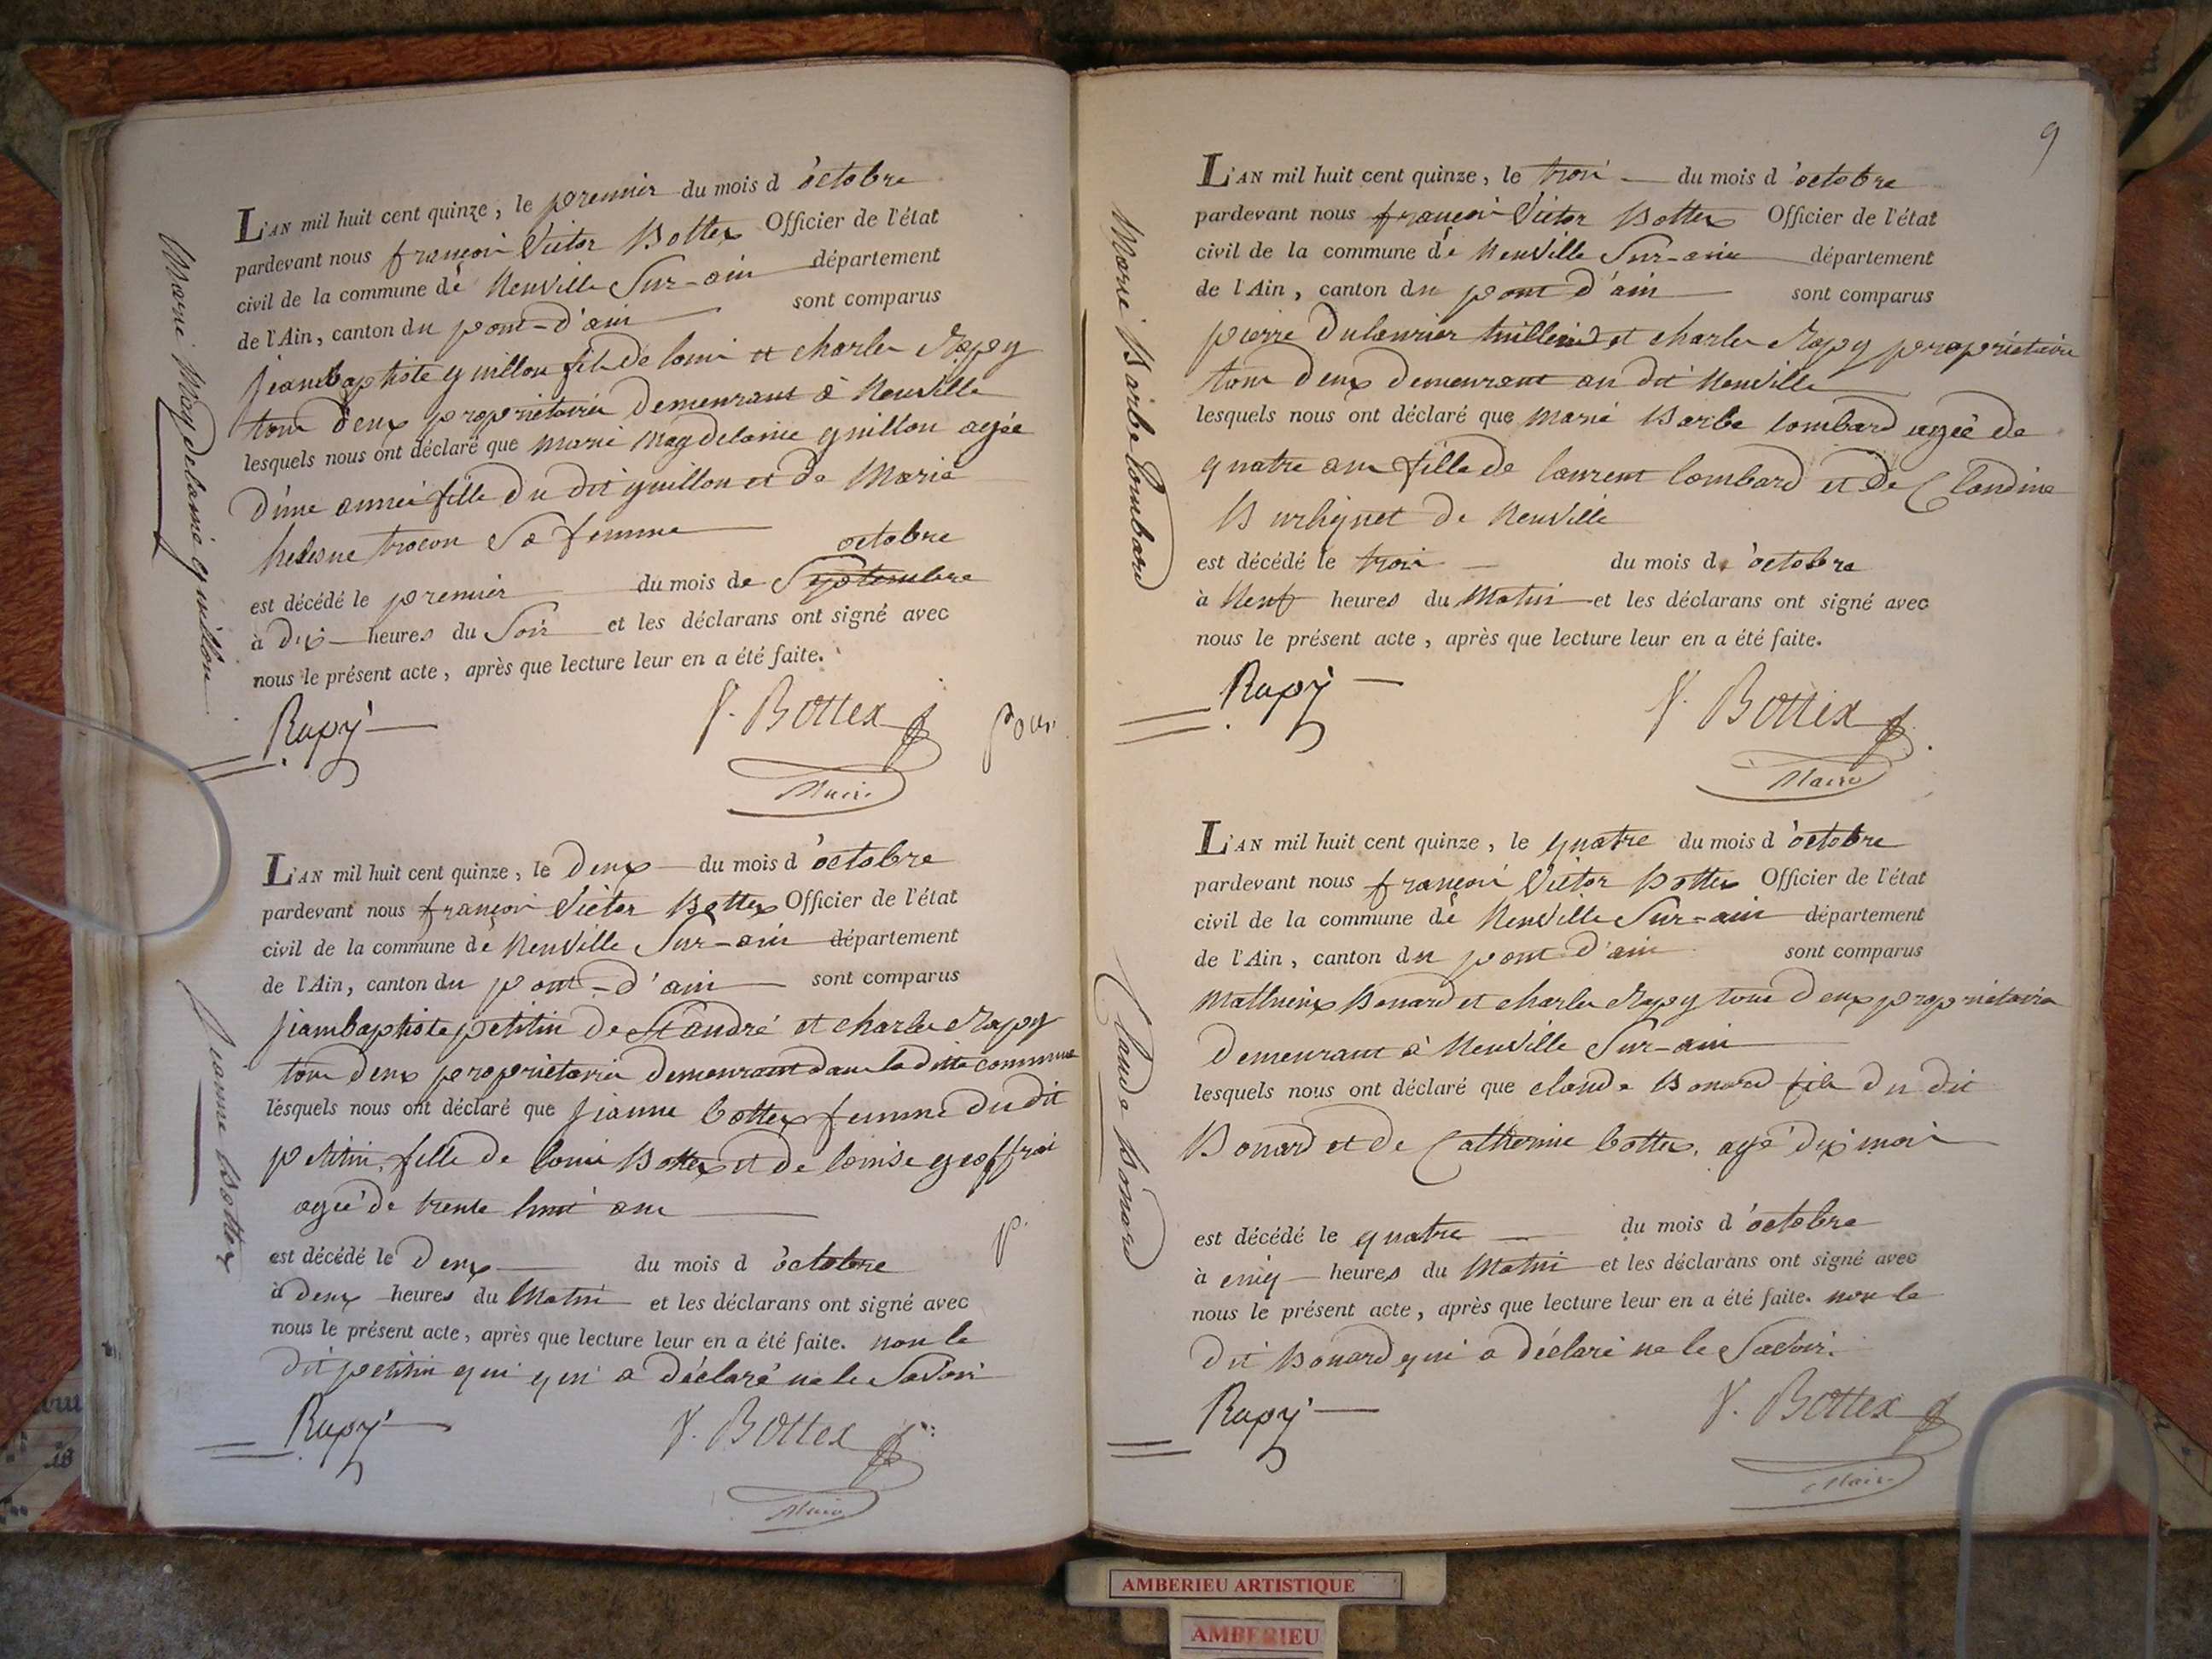 L'AN mil huit cent quinze, le premier du mois d'octobre
pardevant nous françois Victor Bottex Officier de l'état
civil de la commune de Neuville Sur-ain département
de l'Ain, canton du pont-d'ain sont comparus
jeanbaptiste guillon fils de louis et charles Rapy
tous deux propriétaires demeurant à Neuville
lesquels nous ont déclaré que marie magdelaine guillon agée
d'une année fille du dit guillon et de Marie
helesne trocon Sa femme
octobre
est décédé le premier du mois de Septembre
à dix heures du Soir et les déclarans ont signé avec
nous le présent acte, après que lecture leur en a été faite.
Rapy V. Bottex
Maire
Marie Magdelaine guillon
L'AN mil huit cent quinze, le deux du mois d'octobre
pardevant nous françois Victor Bottex Officier de l'état
civil de la commune de Neuville Sur-ain département
de l'Ain, canton du pont-d'ain sont comparus
jeanbaptiste petitin de St andré et charles Rapy
tous deux propriétaires demeurant dans la ditte commune
lesquels nous ont déclaré que jeanne bottex femme du dit
petitin, fille de louis Bottex et de louise geoffroi
agée de trente huit ans
est décédé le deux du mois d'octobre
à deux heures du Matin et les déclarans ont signé avec
nous le présent acte, après que lecture leur en a été faite. non le
dit petitin qui qui a déclaré ne le Savoir
Rapy V. Bottex
Maire
Jeanne Bottex
9
L'AN mil huit cent quinze, le trois du mois d'octobre
pardevant nous françois Victor Bottex Officier de l'état
civil de la commune de Neuville Sur-ain département
de l'Ain, canton du pont d'ain sont comparus
pierre Dulaurier et charles Rapy propriétaire
tous deux demeurant au dit Neuville
lesquels nous ont déclaré que marie Barbe lombard agée de
quatre ans fille de laurent lombard et de Claudine
Burlignet de Neuville
est décédé le trois du mois d'octobre
à Neuf heures du Matin et les déclarans ont signé avec
nous le présent acte, après que lecture leur en a été faite.
Rapy V. Bottex
Maire
Marie Barbe Lombard
L'AN mil huit cent quinze, le quatre du mois d'octobre
pardevant nous françois Victor Bottex Officier de l'état
civil de la commune de Neuville Sur-ain département
de l'Ain, canton du pont d'ain sont comparus
Mathieux Bonard et charles Rapy tous deux propriétaires
demeurant à Neuville Sur-ain
lesquels nous ont déclaré que claude Bonard fils du dit
Bonard et de Catherine bottex, agé dix mois
est décédé le quatre du mois d'octobre
à cinq heures du Matin et les déclarans ont signé avec
nous le présent acte, après que lecture leur en a été faite. non le
dit Bonard qui a déclaré ne le Savoir.
Rapy V. Bottex
Maire
Claude Bonard
AMBERIEU ARTISTIQUE
AMBERIEU